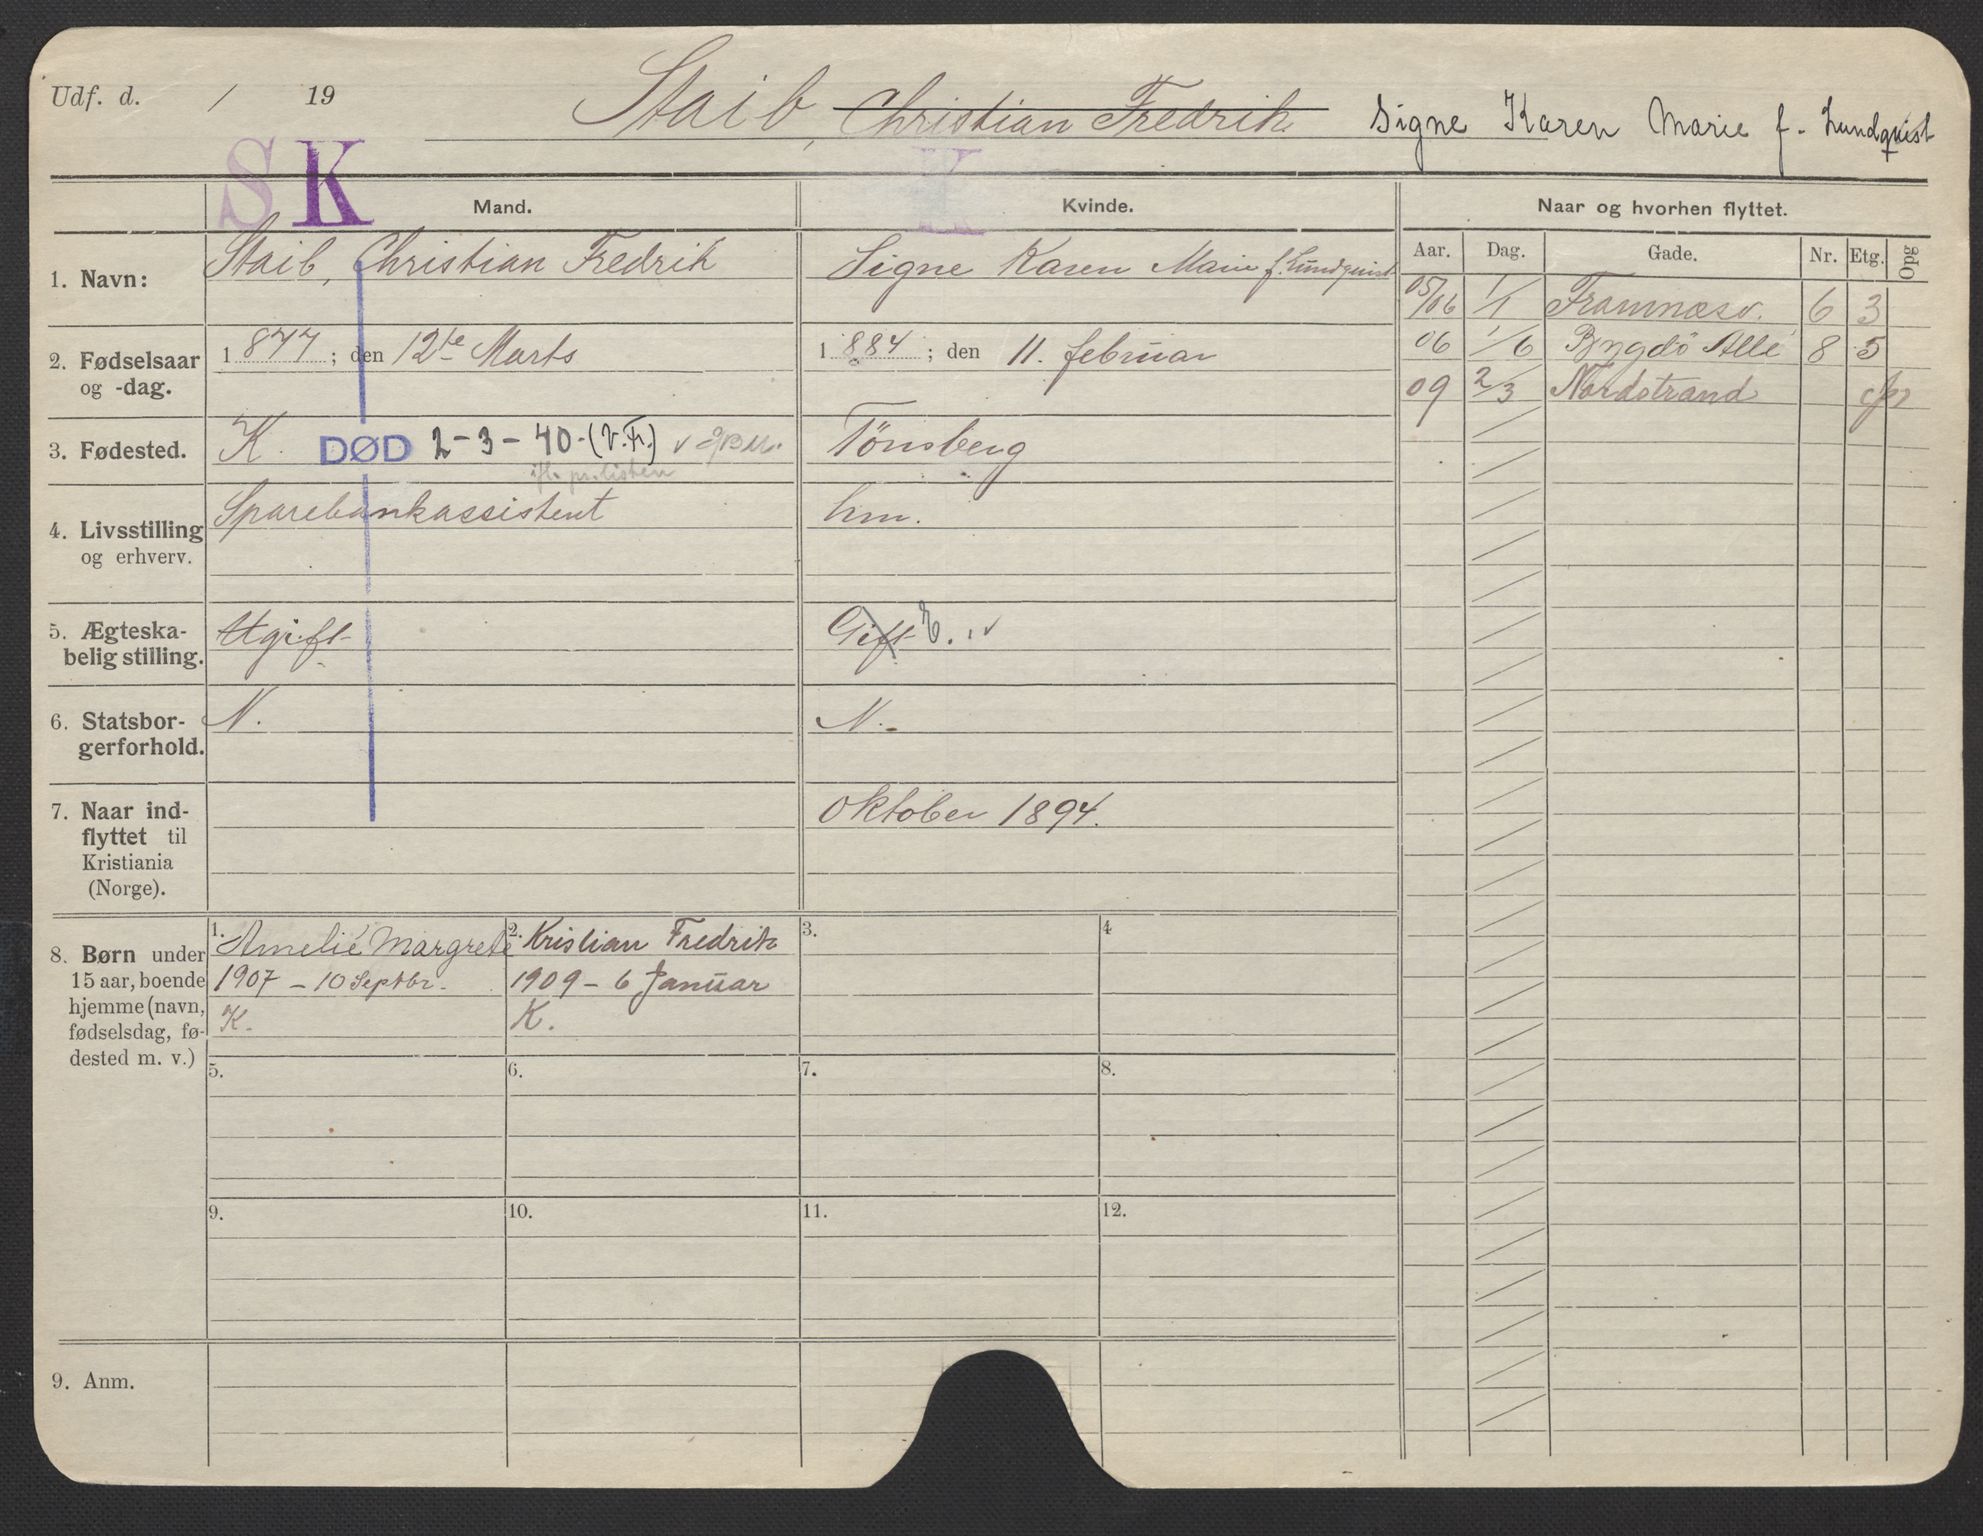 Udf. d. / 19
Staib, Christian Fredrik Signe Karen Marie f. Lundquist
S K K
Mand. Kvinde. Naar og hvorhen flyttet.
Aar. Dag. Gade. Nr. Etg. Opg
1. Navn: Staib, Christian Fredrik Signe Karen Marie f. Lundquist
05/06 1/1 Framnæsv. 6 3
2. Fødselsaar og -dag. 1877; den 12te Marts 1884; den 11. februar
06 1/6 Bygdö Allé 8 5
09 2/3 Nordstrand
3. Fødested. K. DØD 2-3-40-(V.Fr.) v Tönsberg
ifl. pr.listen
4. Livsstilling og erhverv. Sparebankassistent hm.
5. Ægteska-
belig stilling. Ugift Gift E. v
6. Statsbor-
gerforhold. N. N.
7. Naar ind-
flyttet til
Kristiania
(Norge). Oktober 1894.
8. Børn under
15 aar, boende
hjemme (navn,
fødselsdag, fø-
dested m. v.)
1. Amelie Margrete
1907 - 10 Septbr.
K.
2. Kristian Fredrik
1909 - 6 Januar
K.
3.
4
5.
6.
7.
8.
9.
10.
11.
12.
9. Anm.